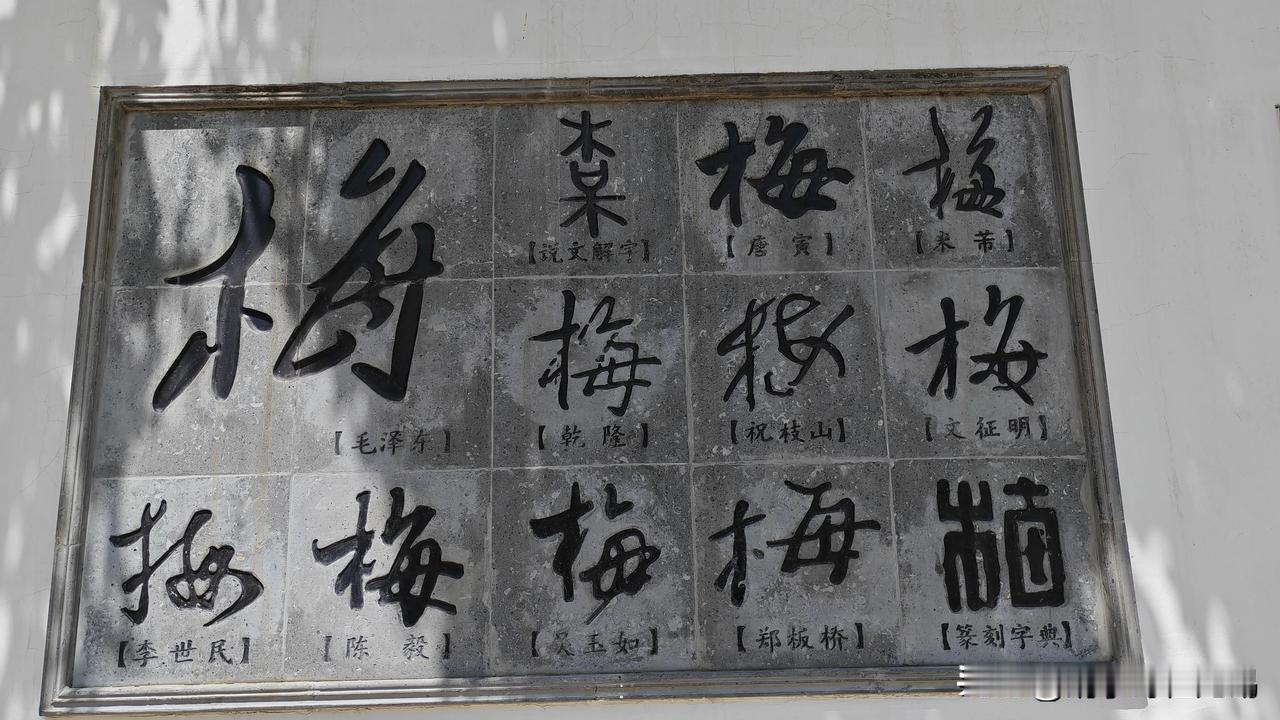 梅
【毛泽东】
梅
【説文解字】
梅
【唐寅】
梅
【米芾】
梅
【乾隆】
梅
【祝枝山】
梅
【文征明】
梅
【李世民】
梅
【陈毅】
梅
【吴玉如】
梅
【郑板桥】
梅
【篆刻字典】